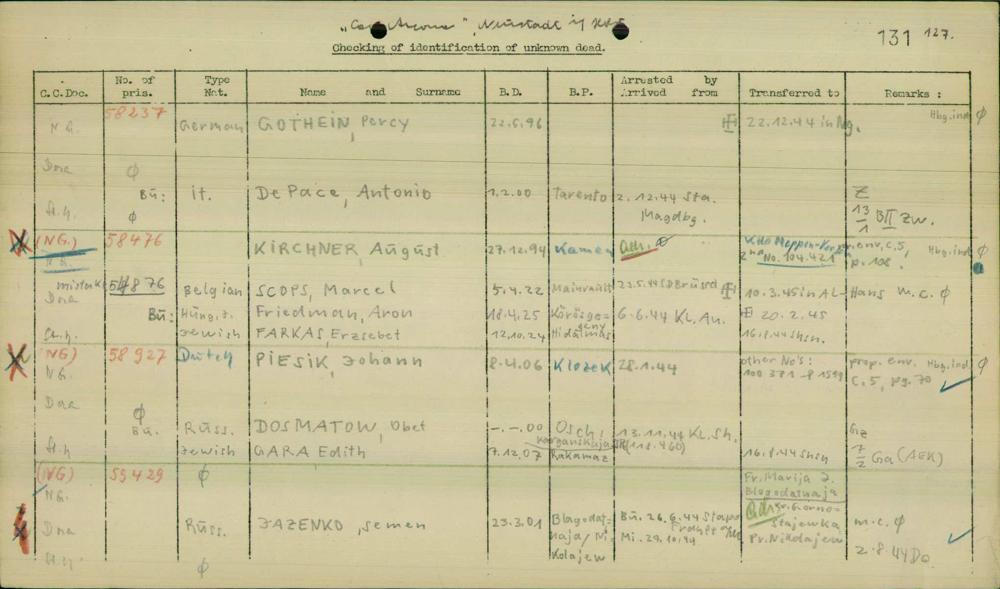 "Cap Arcona", Neustadt i/ Holst
131 127.
Checking of identification of unknown dead.
C.C.Doc. No. of pris. Type Nat. Name and Surname B.D. B.P. Arrested by Arrived from Transferred to Remarks :
58237
N.G. German GOTHEIN, Percy 22.5.96 22.12.44 in Ng. Hbg.ind. Ø
Dora Ø
Bu: it. De Pace, Antonio 1.2.00 Tarento 2.12.44 Sta. Z
St.h. Ø Magdbg. 13/1 BII Zw.
(NG.) 58476 KIRCHNER, August 27.12.94 Kamen Adr. Ø Kdo Meppen-Ver env. C,5, Hbg.ind. Ø
N.G. 2nd No. 104.421 p. 108.
mistake 54876 Belgian SCOPS, Marcel 5.4.22 Mainvault 23.5.44 SD Brüssel 10.3.45 in AL- Hans m.c. Ø
Dora
Bu: Hung.J. Friedman, Aron 18.4.25 Körösge- 6.6.44 KL.Au. 20.2.45
St.h. Jewish FARKAS, Erzsebet 12.10.24 Hidalmas 16.8.44 Shsn.
(NG) 58927 Dutch PIESIK, Johann 8.4.06 Klozek 28.1.44 other No's: prop. env. Hbg.ind. Ø
N.G. 100 381 C.5, pg. 70
Dora Ø
Bu. Russ. DOSMATOW, Obet -.-.00 Osch, 13.11.44 KL.Sh. Gz
(118.460)
St.h Jewish GARA Edith 7.12.07 Rakamaz 16.8.44 Shsn 7/2 Ga (AEK)
(NG) 59429 Ø Fr. Marija J.
N.G. Blagodatnaja
Adr. Gorno-
Dora Russ. JAZENKO, Semen 23.3.01 Blagodat- Bu. 26.6.44 Stapo Stajewka m.c. Ø
naja/Ni- Mi. 29.10.44 Pr. Nikolajew
kolajew 2.8.44 Do
St.h. Ø